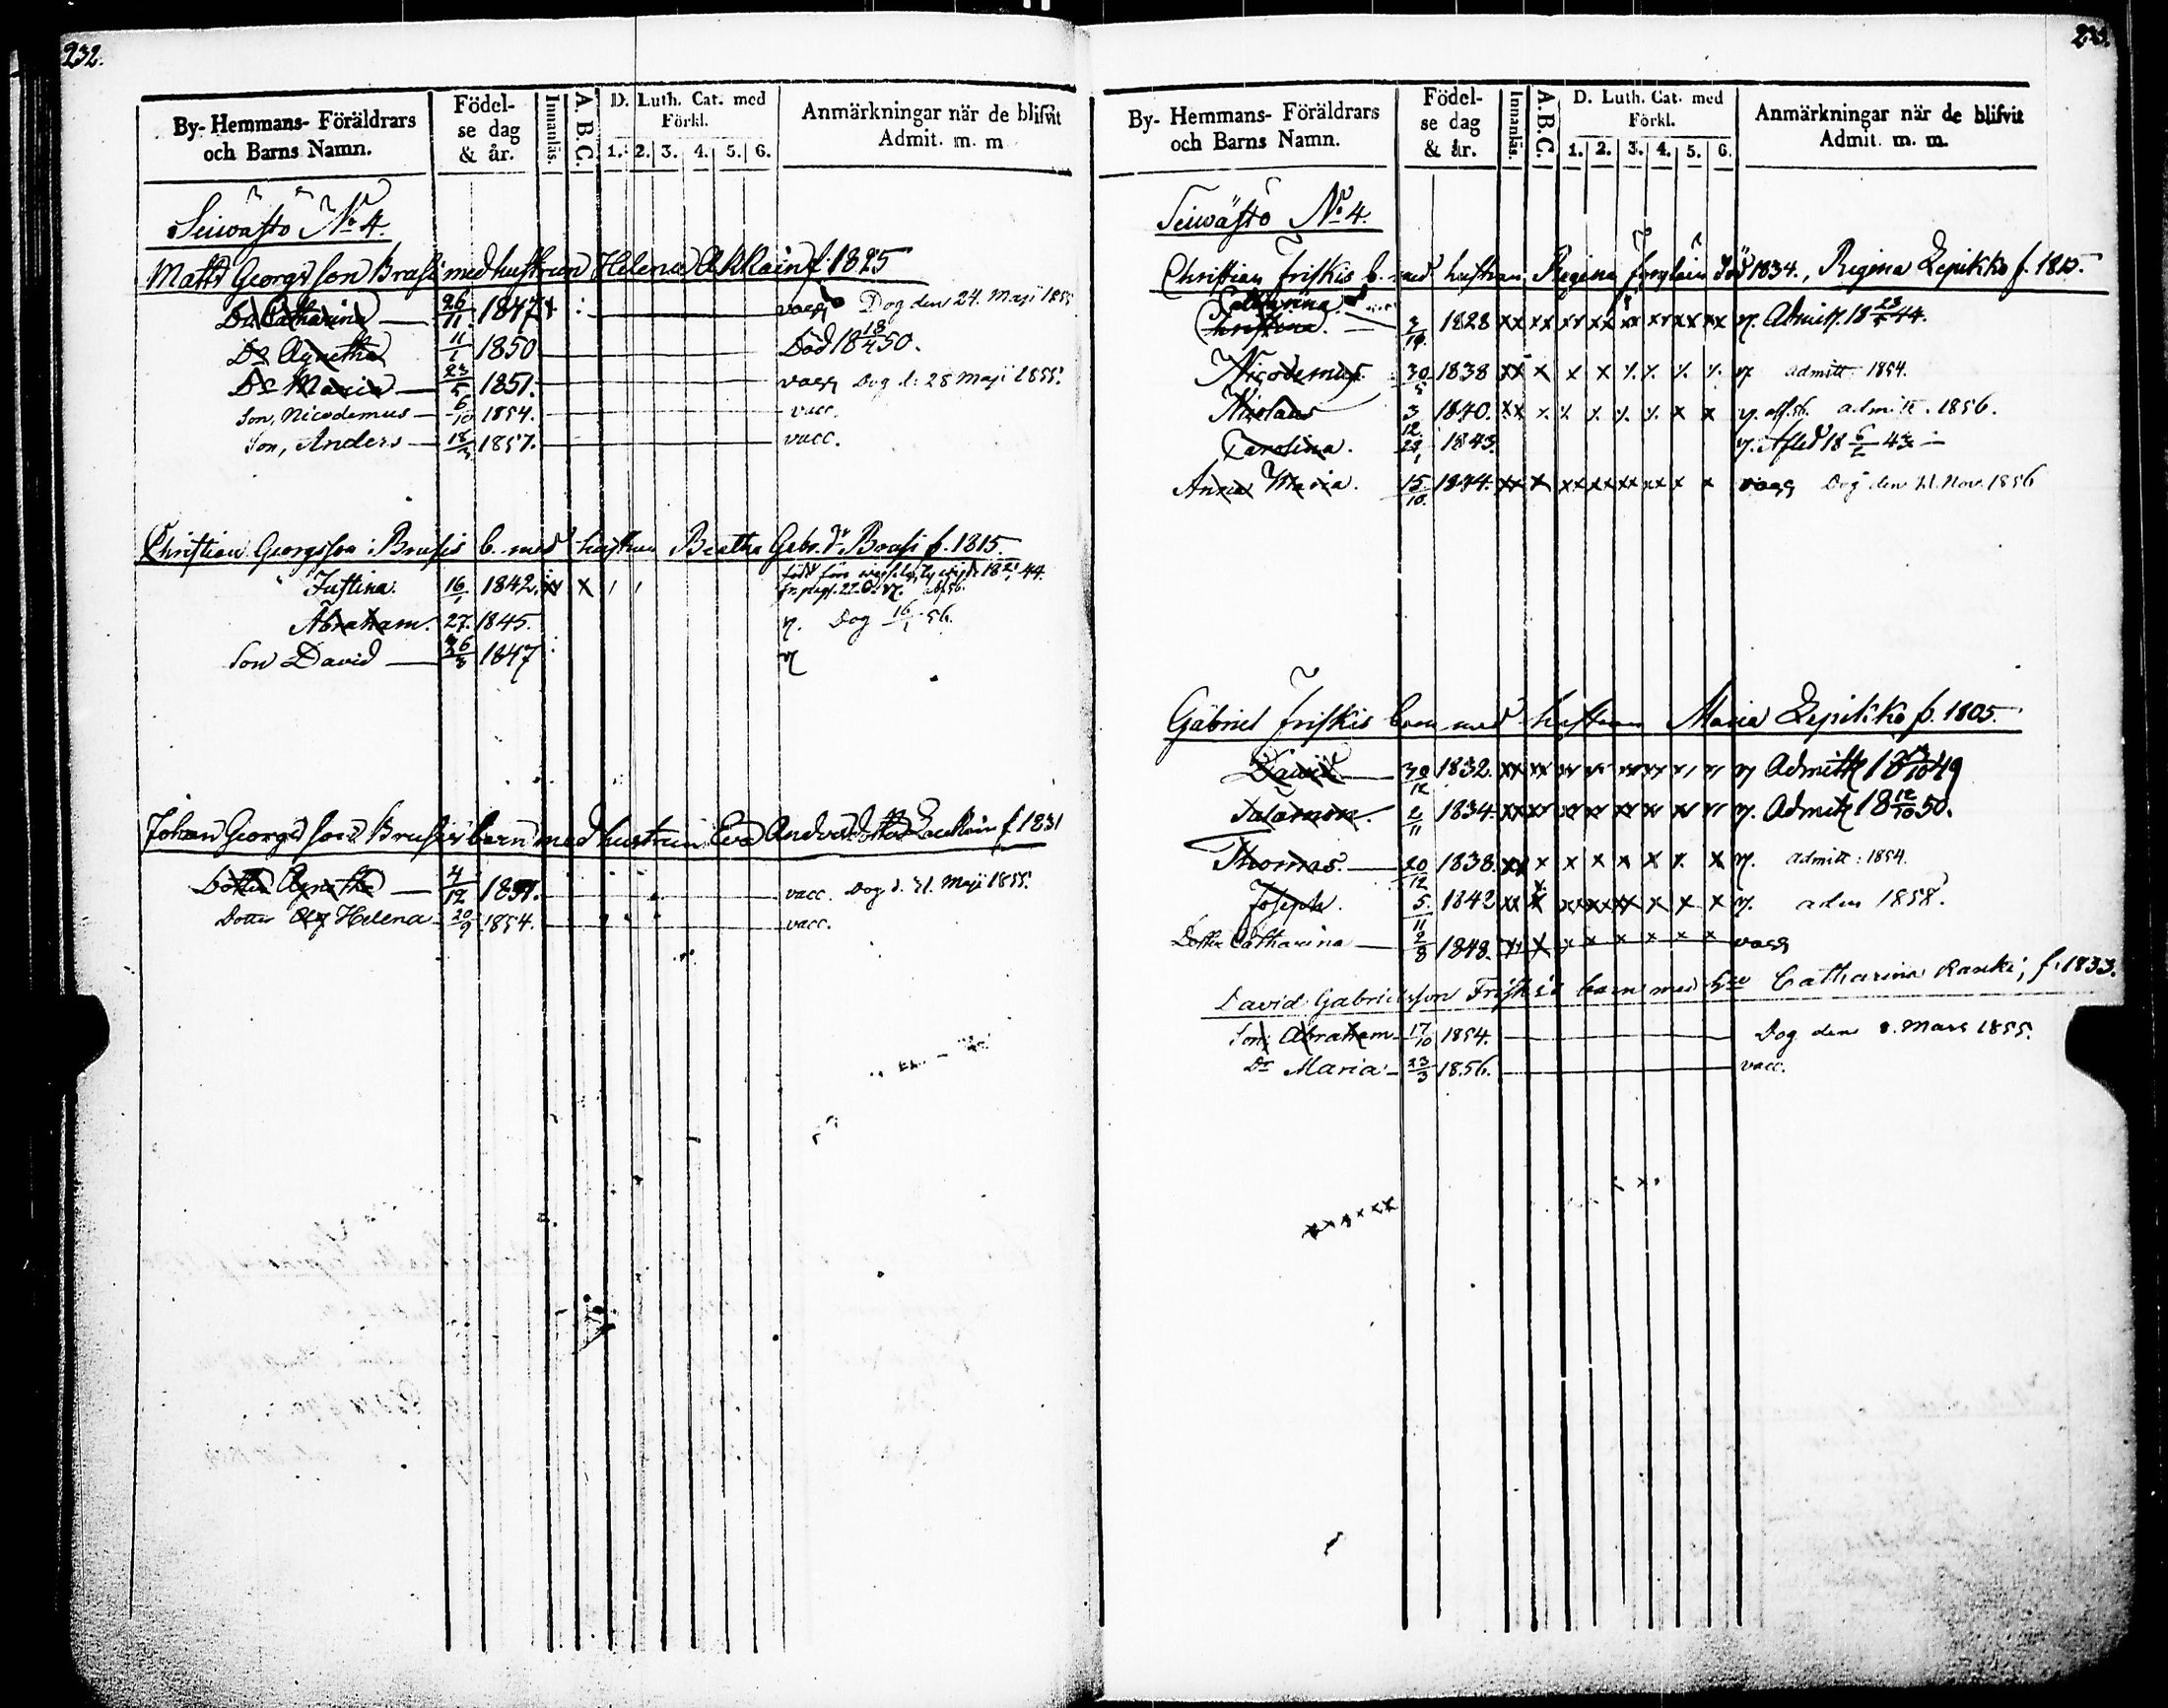 232.
By- Hemmans- Föräldrars och Barns Namn.
Födel- se dag & år.
Innanläs.
A. B. C.
D. Luth. Cat. med Förkl.
1. 2. 3. 4. 5. 6.
Anmärkningar när de blifvit Admit. m. m
Seiwästö No 4.
Matts Georgs son Brusi med hustrun Helena Akkain f. 1825
Dr Catharina 26/11 1847 vacc Dog den 24. Maji 1855
Dr Agnetha 11/1 1850 Död 18 18/4 50.
Dr Maria 23/5 1851. vacc Dog d: 28 Maji 1855.
Son, Nicodemus 6/10 1854. vacc.
Son, Anders 18/3 1857. vacc.
Christian Georgsson Brusis b. med hustrun Beatha Gabr. dr Brusi f. 1815.
Justina. 16/1 1842. x x
Abraham. 27. 1845. Dog 16/1 56.
Son David 26/3 1847
Johan Georgs sons Brusis barn med hustrun Eva Anders dotter f. 1831
Dotter Agnetha 4/12 1851. vacc. Dog d. 31. Maji 1855.
Dotter Helena 20/9 1854. vacc.
By- Hemmans- Föräldrars och Barns Namn.
Födel- se dag & år.
Innanläs.
A. B. C.
D. Luth. Cat. med Förkl.
1. 2. 3. 4. 5. 6.
Anmärkningar när de blifvit Admit. m. m.
Seiwästö No 4.
Christian Friskis b. med hustrun Regina död 1834., Regina Lepikko f. 1815.
Catharina
Christina. 1828 xx xx xx xx xx xx xx xx Admitt. 18 44.
Nicodemus 30/5 1838 xx x x x admitt. 1854.
Nicolaus 3/12 1840. xx x x admitt. 1856.
Carolina. 1843.
Anna Maria. 15/10 1844. xx x xx xx xx xx x x vacc Dog den 21. Nov. 1856
Gabriel Friskis barn med hustrun Maria Lepikko f. 1805.
David 30/12 1832. Admitt 18 49
Salomon. 2/11 1834. Admitt 18 12/10 50.
Thomas. 20/12 1838. xx x x x x x x admitt: 1854.
Joseph. 5/11 1842 xx x xx xx xx x x x adm 1858.
Dotter Catharina 9/8 1848. vacc
David Gabrielsson Friskis barn med Catharina Rauki, f. 1833.
Son, Abraham 17/10 1854. Dog den 8. Mars 1855.
Dr Maria 23/3 1856. vacc.
xxxxxxx